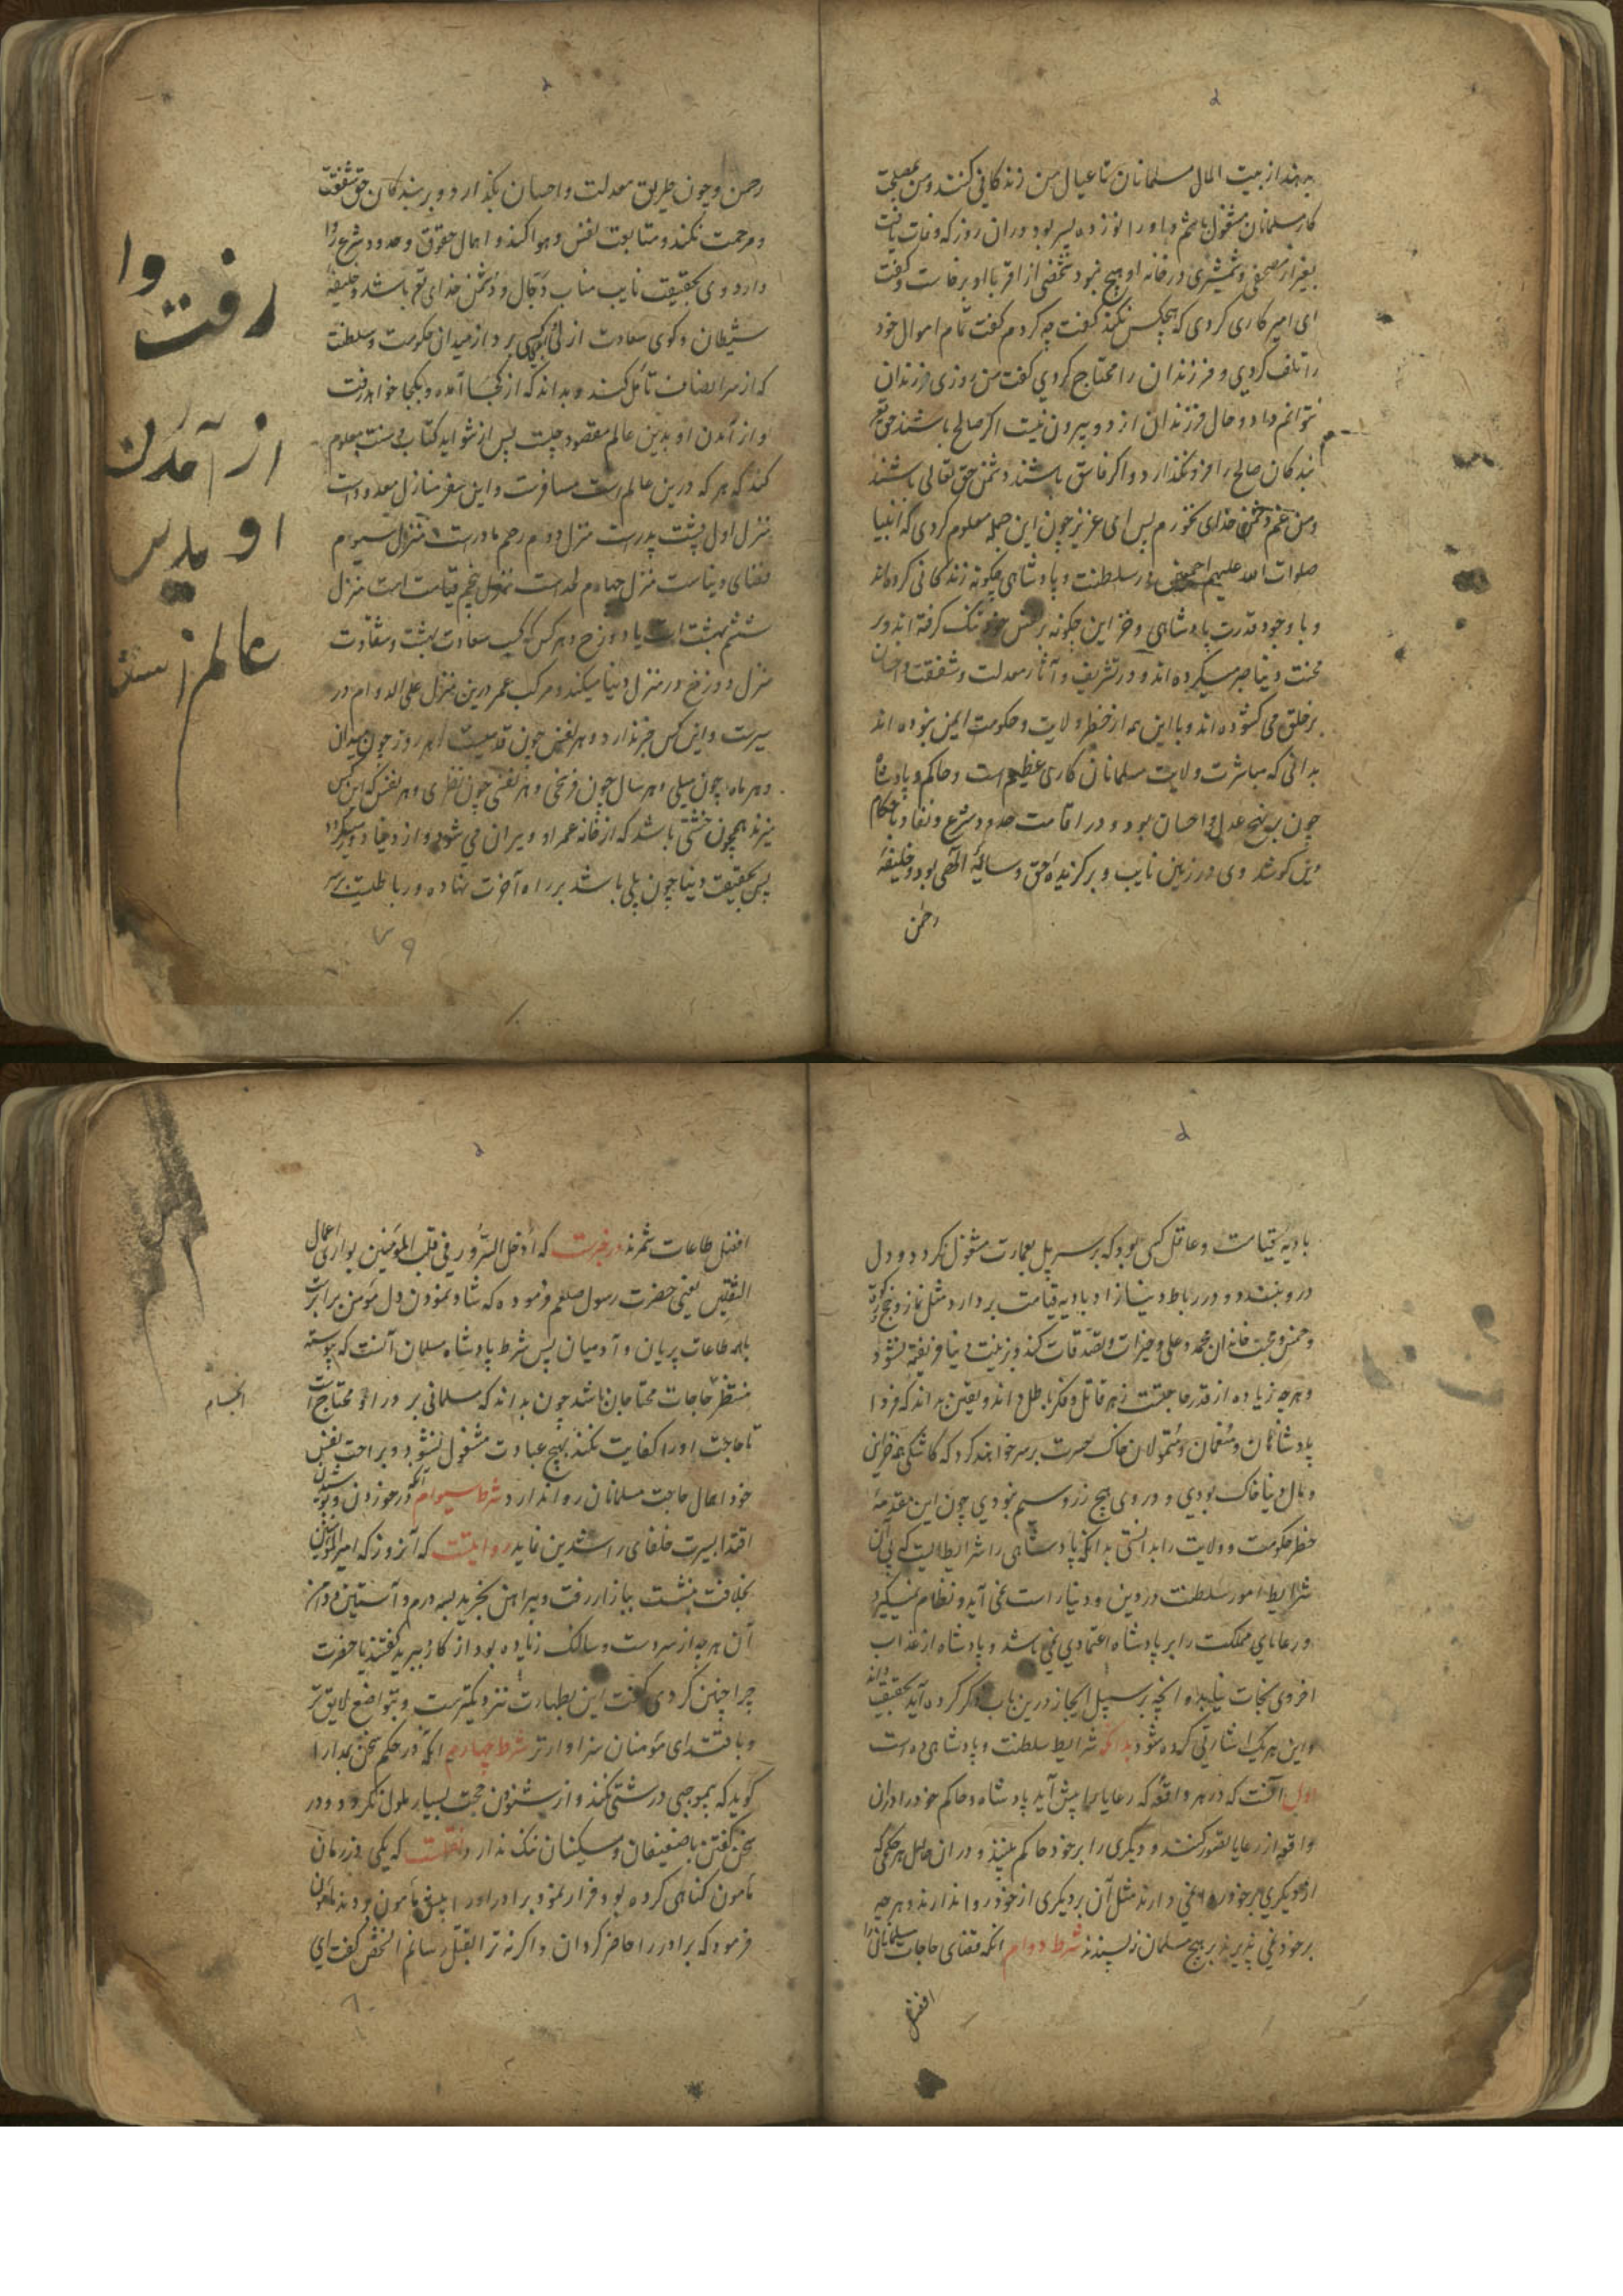 بدهند از بیت المال مسلمانان تا عیال من زندگانی کنند و من بمصلحت
کار مسلمانان مشغول باشم و او را نوزده پسر بود در ان روز که وفات یافت
بغیر از مصحفی و شمشیری در خانه او هیچ نبود شخصی از اقربا او برخاست و گفت
ای امیر کاری کردی که هیچکس نکند گفت چه کردم گفت تمام اموال خود
را تلف کردی و فرزندان را محتاج کردی گفت من روزی فرزندان
نتوانم داد و حال فرزندان از دو بیرون نیست اگر صالح باشند حق تع
بندگان صالح را فرو نگذارد و اگر فاسق باشند دشمن حق تعالی باشند
و من غم دشمن خدای نخورم پس ای عزیز چون این جمله معلوم کردی که انبیا
صلوات الله علیهم اجمعین در سلطنت و پادشاهی چگونه زندگانی کرده‌اند
و با وجود قدرت پادشاهی و خزاین چگونه بر نفس خود تنک گرفته اند و بر
محنت دنیا صبر میکرده اند و در تشریف و آثار معدلت و شفقت و احسان
بر خلق می کشوده اند و با این همه از خطر ولایت و حکومت ایمن نبوده اند
بدانی که مباشرت ولایت مسلمانان کاری عظیم است و حاکم و پادشاه
چون بر نهج عدل و احسان بود و در اقامت حدود شرع و نفاد احکام
دین کوشد وی در زمین نایب و برگزیده حق و سایه الهی بود و خلیفه
رحمن
رحمن و چون طریق معدلت و احسان بگذارد و بر بندگان حق شفقت
و مرحمت نکند و متابعت نفس و هوا کند و اهمال حقوق و حدود شرع روا
دارد وی بحقیقت نایب مناب دجال و دشمن خدای تع باشد و خلیفه
شیطان و کوی سعادت ازلی کسی برد از میدان حکومت و سلطنت
که از سر انصاف تامل کند و بداند که از کجا آمده و بکجا خواهد رفت
و از آمدن او بدین عالم مقصود چیست پس از شواهد کتاب و سنت معلوم
کند که هر که درین عالم است مسافرست و این سفر منازل معدود است
منزل اول پشت پدرست منزل دوم رحم مادرست منزل سیوم
فضای دنیاست منزل چهارم لحد است منزل پنجم قیامت است منزل
ششم بهشت است یا دوزخ و هر کس که کسب سعادت بهشت و شقاوت
منزل دوزخ در منزل دنیا میکند و مرکب عمر درین منزل علی الدوام در
سیرست و این کس خبر ندارد و هر نفس چون قدمیست و هر روز چون میدان
و هر ماه چون میلی و هر سال چون فرسخی و هر نفسی چون نظری و هر نفس که این کس
میزند همچون خشتی باشد که از خانه عمر او ویران می شود و از دنیا دور میکردد
پس بحقیقت دنیا چون پلی باشد بر راه آخرت نهاده و رباطیست بر سر
رفت وا
از آمدن
او بدین
عالم است
۷۹
بادیه قیامت و عاقل کسی بود که بر سر پل بعمارت مشغول نکردد و دل
درو نبندد و در رباط دنیا زاد بادیه قیامت بردارد مثل نماز و حج و زکوة
و خمس و محبت خاندان محمد و علی و خیرات و تصدقات کند و بزینت دنیا فریفته نشود
و هرچه زیاده از قدر حاجتست زهر قاتل و فکر باطل داند و یقین بداند که فردا
پادشاهان و منعمان و متمولان خاک حسرت بر سر خواهند کرد که کاشکی همه خزاین
و مال دنیا خاک بودی و در وی هیچ زر و سیم نبودی چون این مقدمه
خطر حکومت و ولایت را بدانستی بدانکه پادشاهی را شرایط ایست که بی آن
شرایط امور سلطنت در دین و دنیا راست نمی آید و نظام نمیگیرد
و رعایای مملکت را بر پادشاه اعتمادی نمی باشد و پادشاه از عذاب
اخروی نجات نیابد و انچه بر سبیل ایجاز درین باب ذکر کرده آید بحقیقت داند
و این هر یک اشارتی کرده شود بدانکه شرایط سلطنت و پادشاهی ده است
اول آنست که در هر واقعه که رعایا را پیش آید پادشاه و حاکم خود را در ان
واقعه از رعایا تصور کنند و دیگری را بر خود حاکم بینند و در ان حال هر حکمی که
از دیگری بر خود روا نمی دارند مثل آن بر دیگری از خود روا ندارند و هر چه
بر خود نمی پذیرند بر هیچ مسلمان نپسندند شرط دوام انکه قضای حاجات مسلمانان را
افضل
افضل طاعات شمرند در خبرست که ادخل السرور فی قلب المومنین یوازی اعمال
الثقلین یعنی حضرت رسول صلعم فرموده که شاد نمودن دل مومن برابرست
با همه طاعات پریان و آدمیان پس شرط پادشاه مسلمان آنست که پیوسته
منتظر حاجات محتاجان باشد چون بداند که مسلمانی بر در او محتاج است
تا حاجت او را کفایت نکند بهیچ عبادت مشغول نشود و براحت نفس
خود اهمال حاجت مسلمانان روا ندارد شرط سیوام انکه در خوردن و پوشیدن
اقتدا بسیرت خلفای راشدین نماید روایتست که آنروز که امیر المومنین
بخلافت بنشست ببازار رفت و پیراهن بخرید بسه درم و آستین و دامن
آن هرچه از سر دست و سالنک زیاده بود از کارد ببرید گفتند یا حضرت
چرا چنین کردی گفت این بطهارت نزدیکترست و بتواضع لایق تر
و باقتدای مومنان سزاوارتر شرط چهارم انکه در حکم سخن بمدارا
گوید که بی موجبی درشتی نکند و از شنودن حجت بسیار ملول نگردد و در
سخن گفتن با ضعیفان و مسکینان ننک ندارد نقلست که یکی در زمان
مامون گناهی کرده بود فرار نمود برادر او را پیش مامون بردند مامون
فرمود که برادر را حاضر گردان و اگر نه ترا بقتل رسانم الشخص گفت ای
۸۰